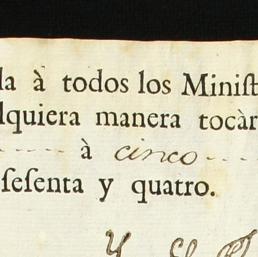 la à todos los Minist
lquiera manera tocàr
----- à cinco ----
sesenta y quatro.